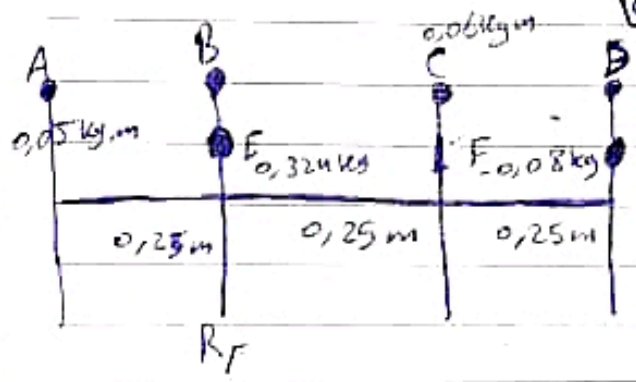 0,06kgm
A B C D
0,05 kg.m E 0,324kg F 0,08 kg
0,25m 0,25m 0,25m
RF